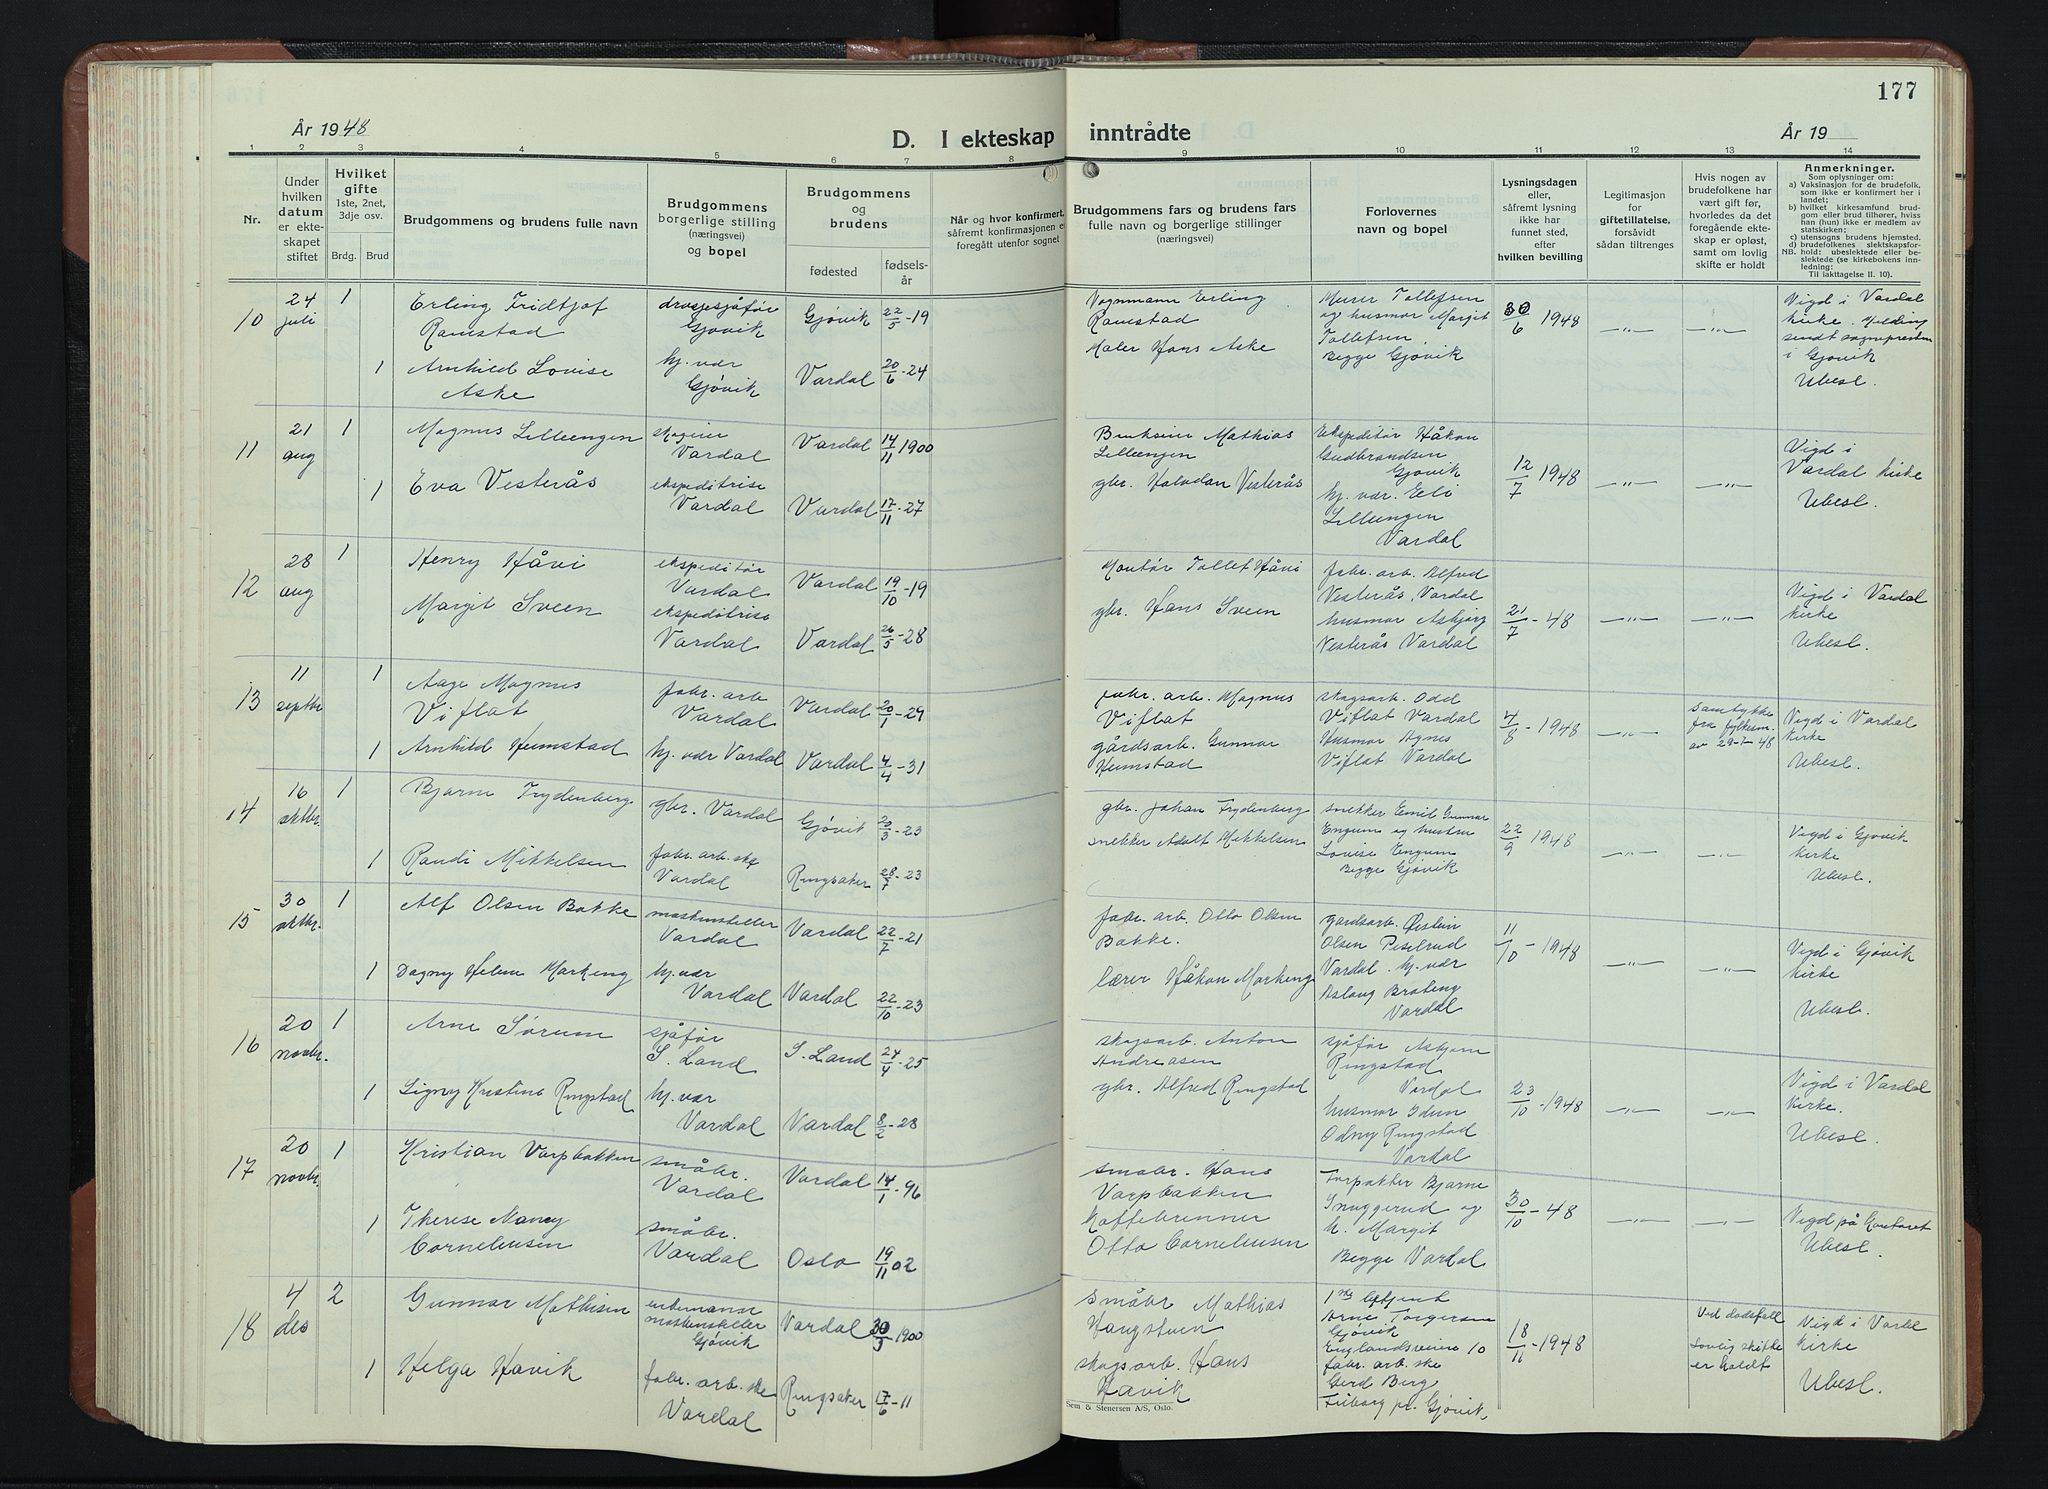 177
År 1948
D. I ekteskap inntrådte
År 19
1 2 3 4 5 6 7 8 9 10 11 12 13 14
Nr.
Under hvilken datum er ekteskapet stiftet
Hvilket gifte 1ste, 2net, 3dje osv.
Brdg. Brud
Brudgommens og brudens fulle navn
Brudgommens borgerlige stilling (næringsvei) og bopel
Brudgommens og brudens
fødested
fødselsår
Når og hvor konfirmert, såfremt konfirmasjonen er foregått utenfor sognet
Brudgommens fars og brudens fars fulle navn og borgerlige stillinger (næringsvei)
Forlovernes navn og bopel
Lysningsdagen eller, såfremt lysning ikke har funnet sted, efter hvilken bevilling
Legitimasjon for giftetillatelse, forsåvidt sådan tiltrenges
Hvis nogen av brudefolkene har vært gift før, hvorledes da det foregående ekteskap er opløst, samt om lovlig skifte er holdt
Anmerkninger.
Som oplysninger om:
a) Vaksinasjon for de brudefolk, som ikke er konfirmert her i landet;
b) hvilket kirkesamfund brudgom eller brud tilhører, hviss han (hun) ikke er medlem av statskirken;
c) utensogns brudens hjemsted.
d) brudefolkenes slektskapsforhold: ubeslektede eller beslektede (se kirkebokens innledning:
NB. Til iakttagelse II. 10).
10 24 juli 1
Erling Fridtjof Ramstad
drosjesjåfør Gjøvik
Gjøvik 22/5-19
Vognmann Erling Ramstad
Murer Tollefsen og husmor Margit Tollefsen Begge Gjøvik
30/6 1948
-"- -"-
Vigd i Vardal kirke. Melding sendt sognepresten i Gjøvik Ubesl.
1 Arnhild Lovise Aske
hj. vær Gjøvik
Vardal 20/6-24
Maler Hans Aske
11 21 aug 1
Magnus Lilleengen
skogeier Vardal
Vardal 14/11 1900
Brukseier Mathias Lilleengen
Ekspeditør Håkon Gudbrandsen Gjøvik
hj. vær. Eli Lilleengen Vardal
12/7 1948
-"- -"-
Vigd i Vardal kirke Ubesl.
1 Eva Vesterås
ekspeditrise Vardal
Vardal 17/11-27
gbr. Halvdan Vesterås
12 28 aug 1
Henry Håvi
ekspeditør Vardal
Vardal 19/10-19
Montør Tollef Håvi
fabr. arb. Alfred Vesterås, Vardal
husmor Asbjørg Vesterås Vardal
21/7-48
-"- -"-
Vigd i Vardal kirke Ubesl.
Margit Sveen
ekspeditrise Vardal
Vardal 26/5-28
gbr. Hans Sveen
13 11 septbr 1
Aage Magnus Viflat
fabr. arb Vardal
Vardal 20/1-29
fabr. arb. Magnus Viflat
skogsarb. Odd Viflat Vardal
Husmor Agnes Viflat Vardal
4/8-1948
-"-
samtykke fra fylkesm. av 29-7-48
Vigd i Vardal kirke Ubesl.
1 Arnhild Heimstad
hj. vær Vardal
Vardal 4/4-31
gårdsarb. Gunnar Heimstad
14 16 oktbr. 1
Bjarne Frydenberg
gbr. Vardal
Gjøvik 20/3-23
gbr. Johan Frydenberg
snekker Emil Gunnar Engum og hustru Lovise Engum Begge Gjøvik
22/9 1948
-"- -"-
Vigd i Gjøvik kirke Ubesl.
1 Randi Mikkelsen
fabr. arb. ske Vardal
Ringsaker 28/7-23
snekker Adolf Mikkelsen
15 30 oktbr. 1
Alf Olsen Bakke
maskinsteller Vardal
Vardal 22/7-21
fabr. arb. Otto Olsen Bakke.
gardsarb. Øistein Olsen Peselrud Vardal. hj. vær Aslaug Brateng Vardal
11/10-1948
-"- -"-
Vigd i Gjøvik kirke Ubesl.
1 Dagny Helene Markeng
hj. vær Vardal
Vardal 22/10-23
lærer Håkon Markeng
16 20 novbr. 1
Arne Sørum
sjåfør S. Land
S. Land 24/4-25
skogsarb. Anton Andreasen
sjåfør Asbjørn Ringstad Vardal
husmor Idun Odny Ringstad Vardal
23/10-1948
-"- -"-
Vigd i Vardal kirke. Ubesl.
1 Signy Kristine Ringstad
hj. vær Vardal
Vardal 8/2-28
gbr. Alfred Ringstad
17 20 novbr. 1
Kristian Varpbakken
småbr. Vardal
Vardal 14/1-96
småbr. Hans Varpbakken
Forpakter Bjarne Snuggerud og h. Margit Begge Vardal
30/10-48
-"- -"-
Vigd på kontoret Ubesl.
1 Therese Nancy Corneliussen
småbr. Vardal
Oslo 19/11 02
Kaffebrenner Otto Corneliussen
18 4 des 2
Gunnar Mathisen
enkemann maskinsteller Gjøvik
Vardal 30/5-1900
småbr Mathias Haugstuen
Arne Torgersen Gjøvik Englandsveien 10
fabr. arb. ske Gerd Berg Fiborg pr. Gjøvik.
18/11-1948
-"-
Ved dødsfall Lovlig skifte er holdt
Vigd i Vardal kirke Ubesl.
1 Helga Havik
fabr. arb. ske Vardal
Ringsaker 17/6-11
skogsarb. Hans Havik
Sem & Stenersen A/S, Oslo.